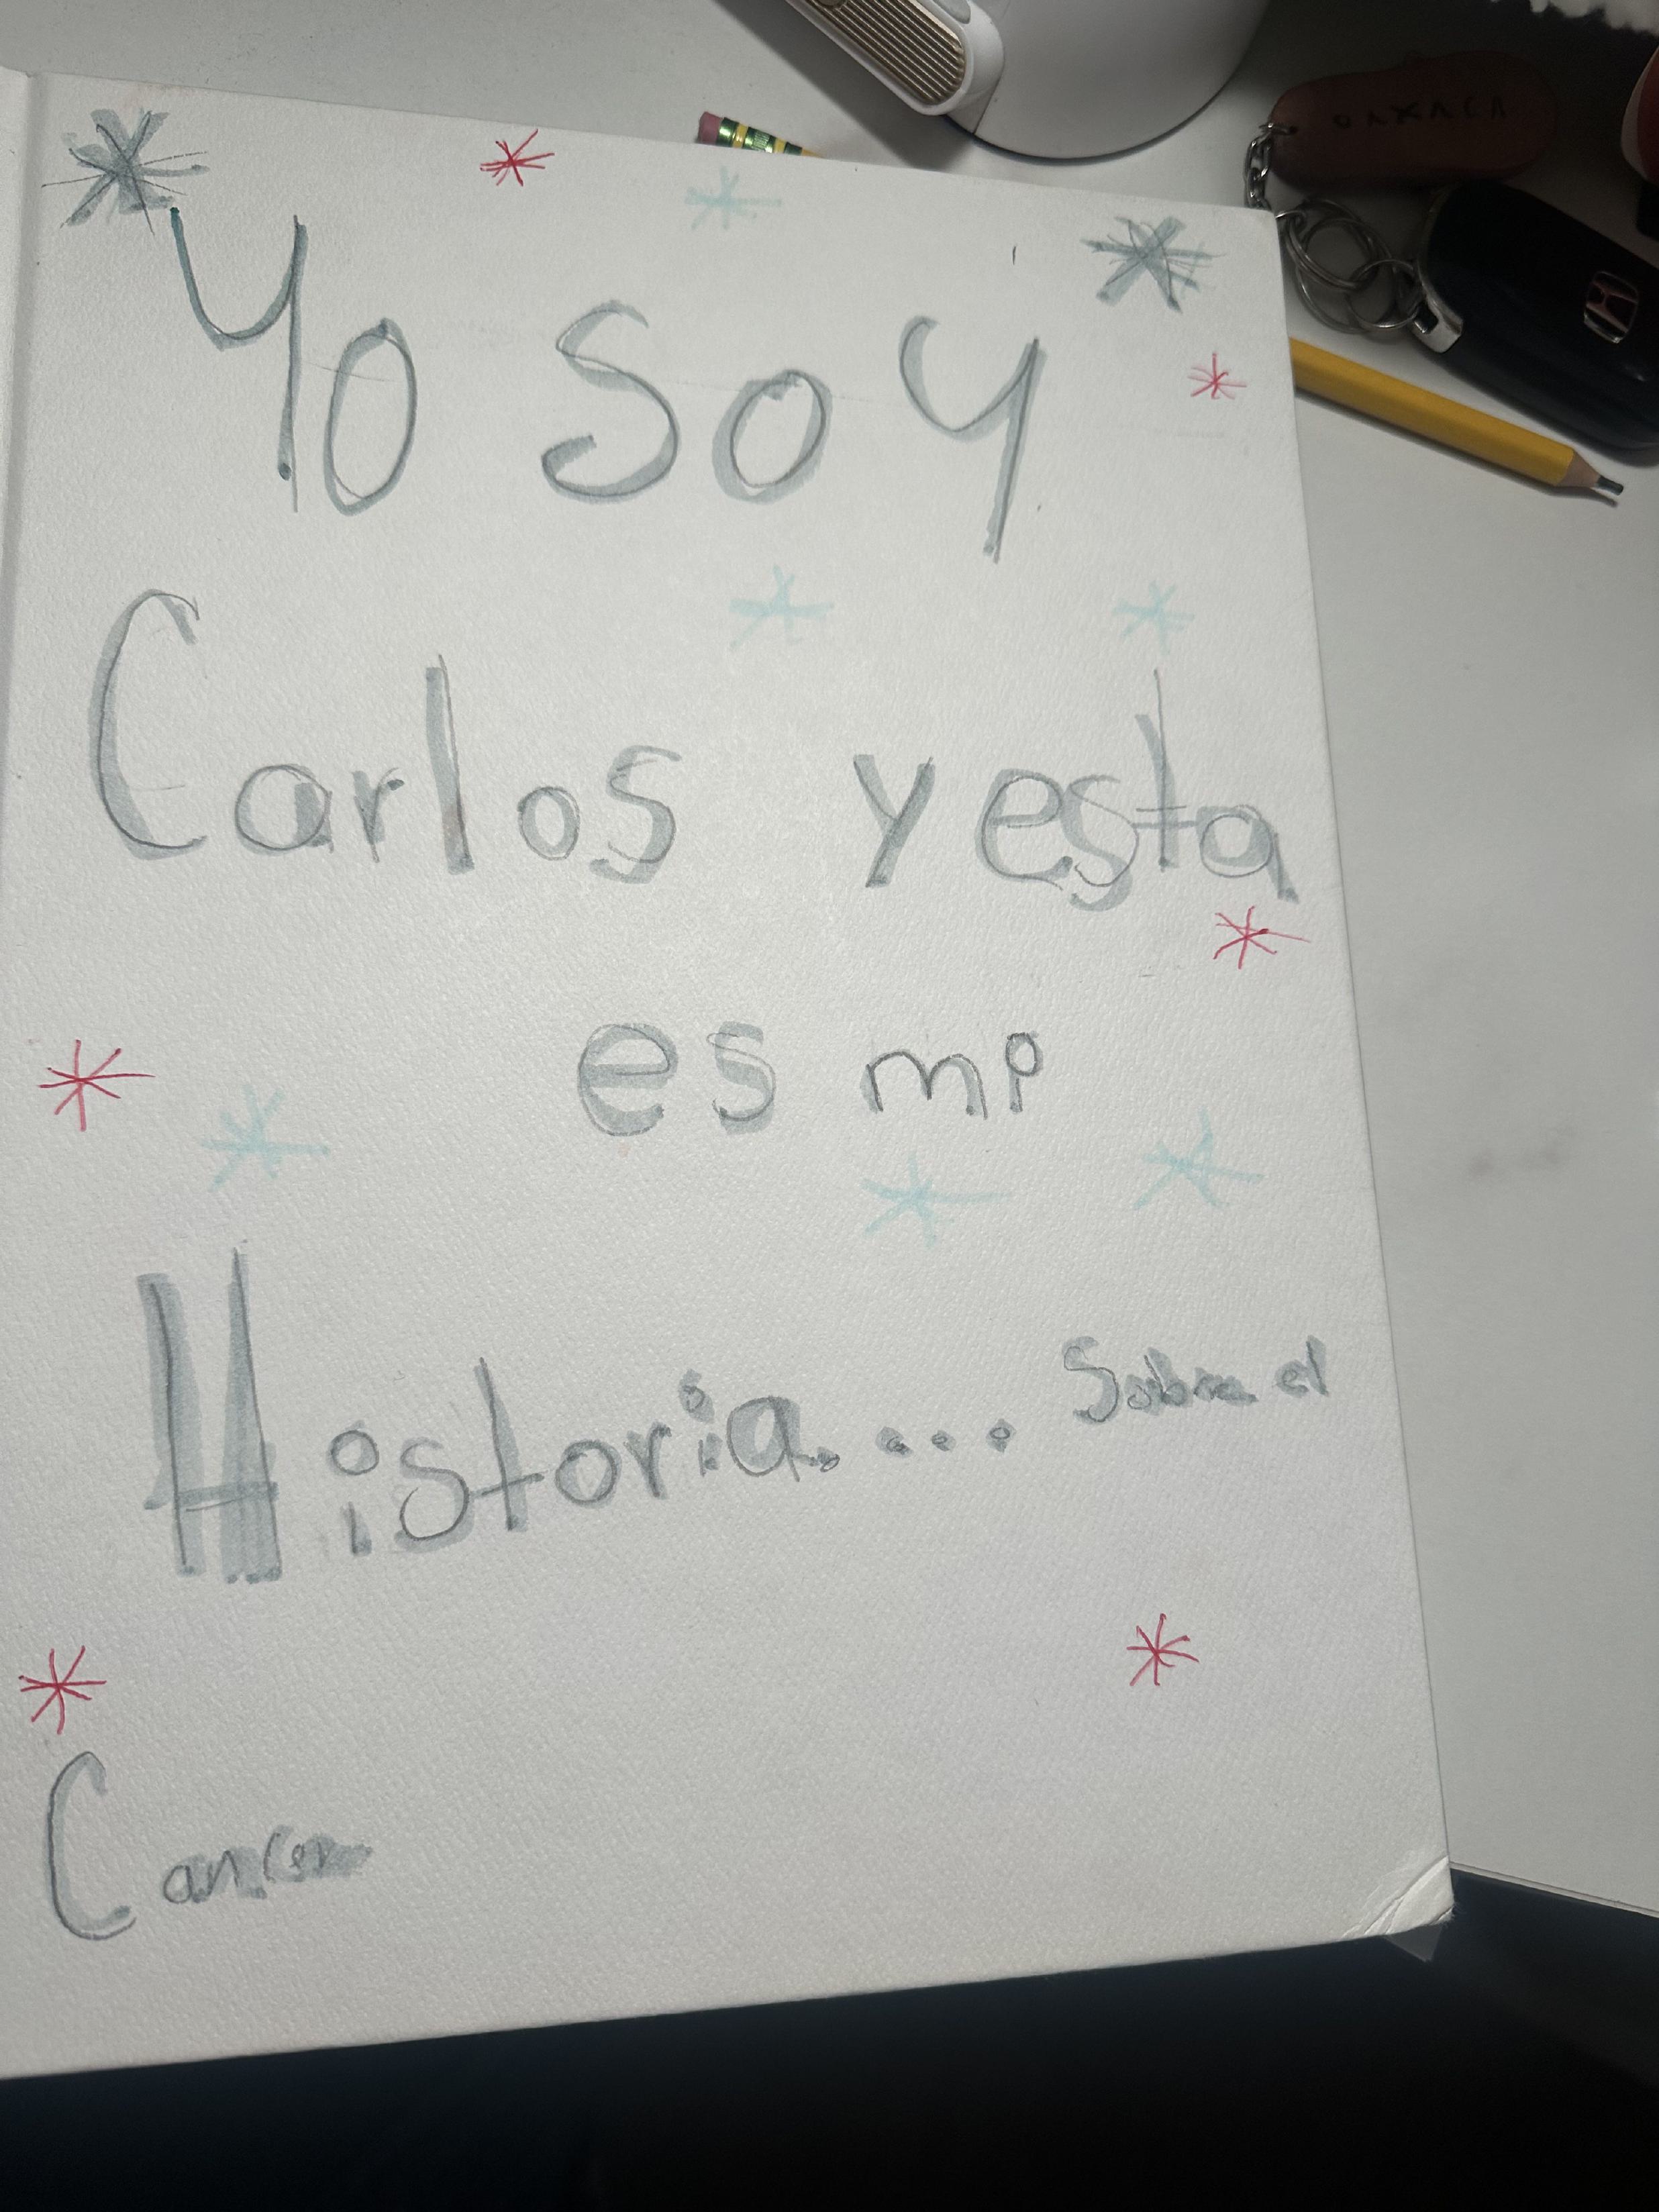 OAXACA
Yo soy
Carlos y esta
es mi
Historia.... Sobre el
Cancer